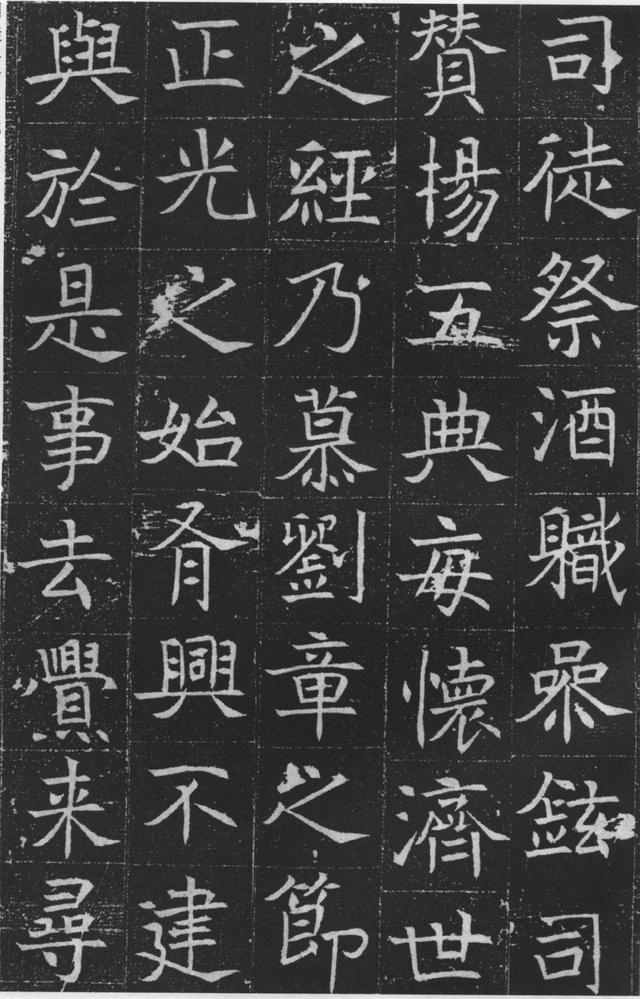 司徒祭酒軄參鉉司
賛揚五典每懷濟世
之經乃慕劉章之節
正光之始肴興不建
與於是事去釁来尋